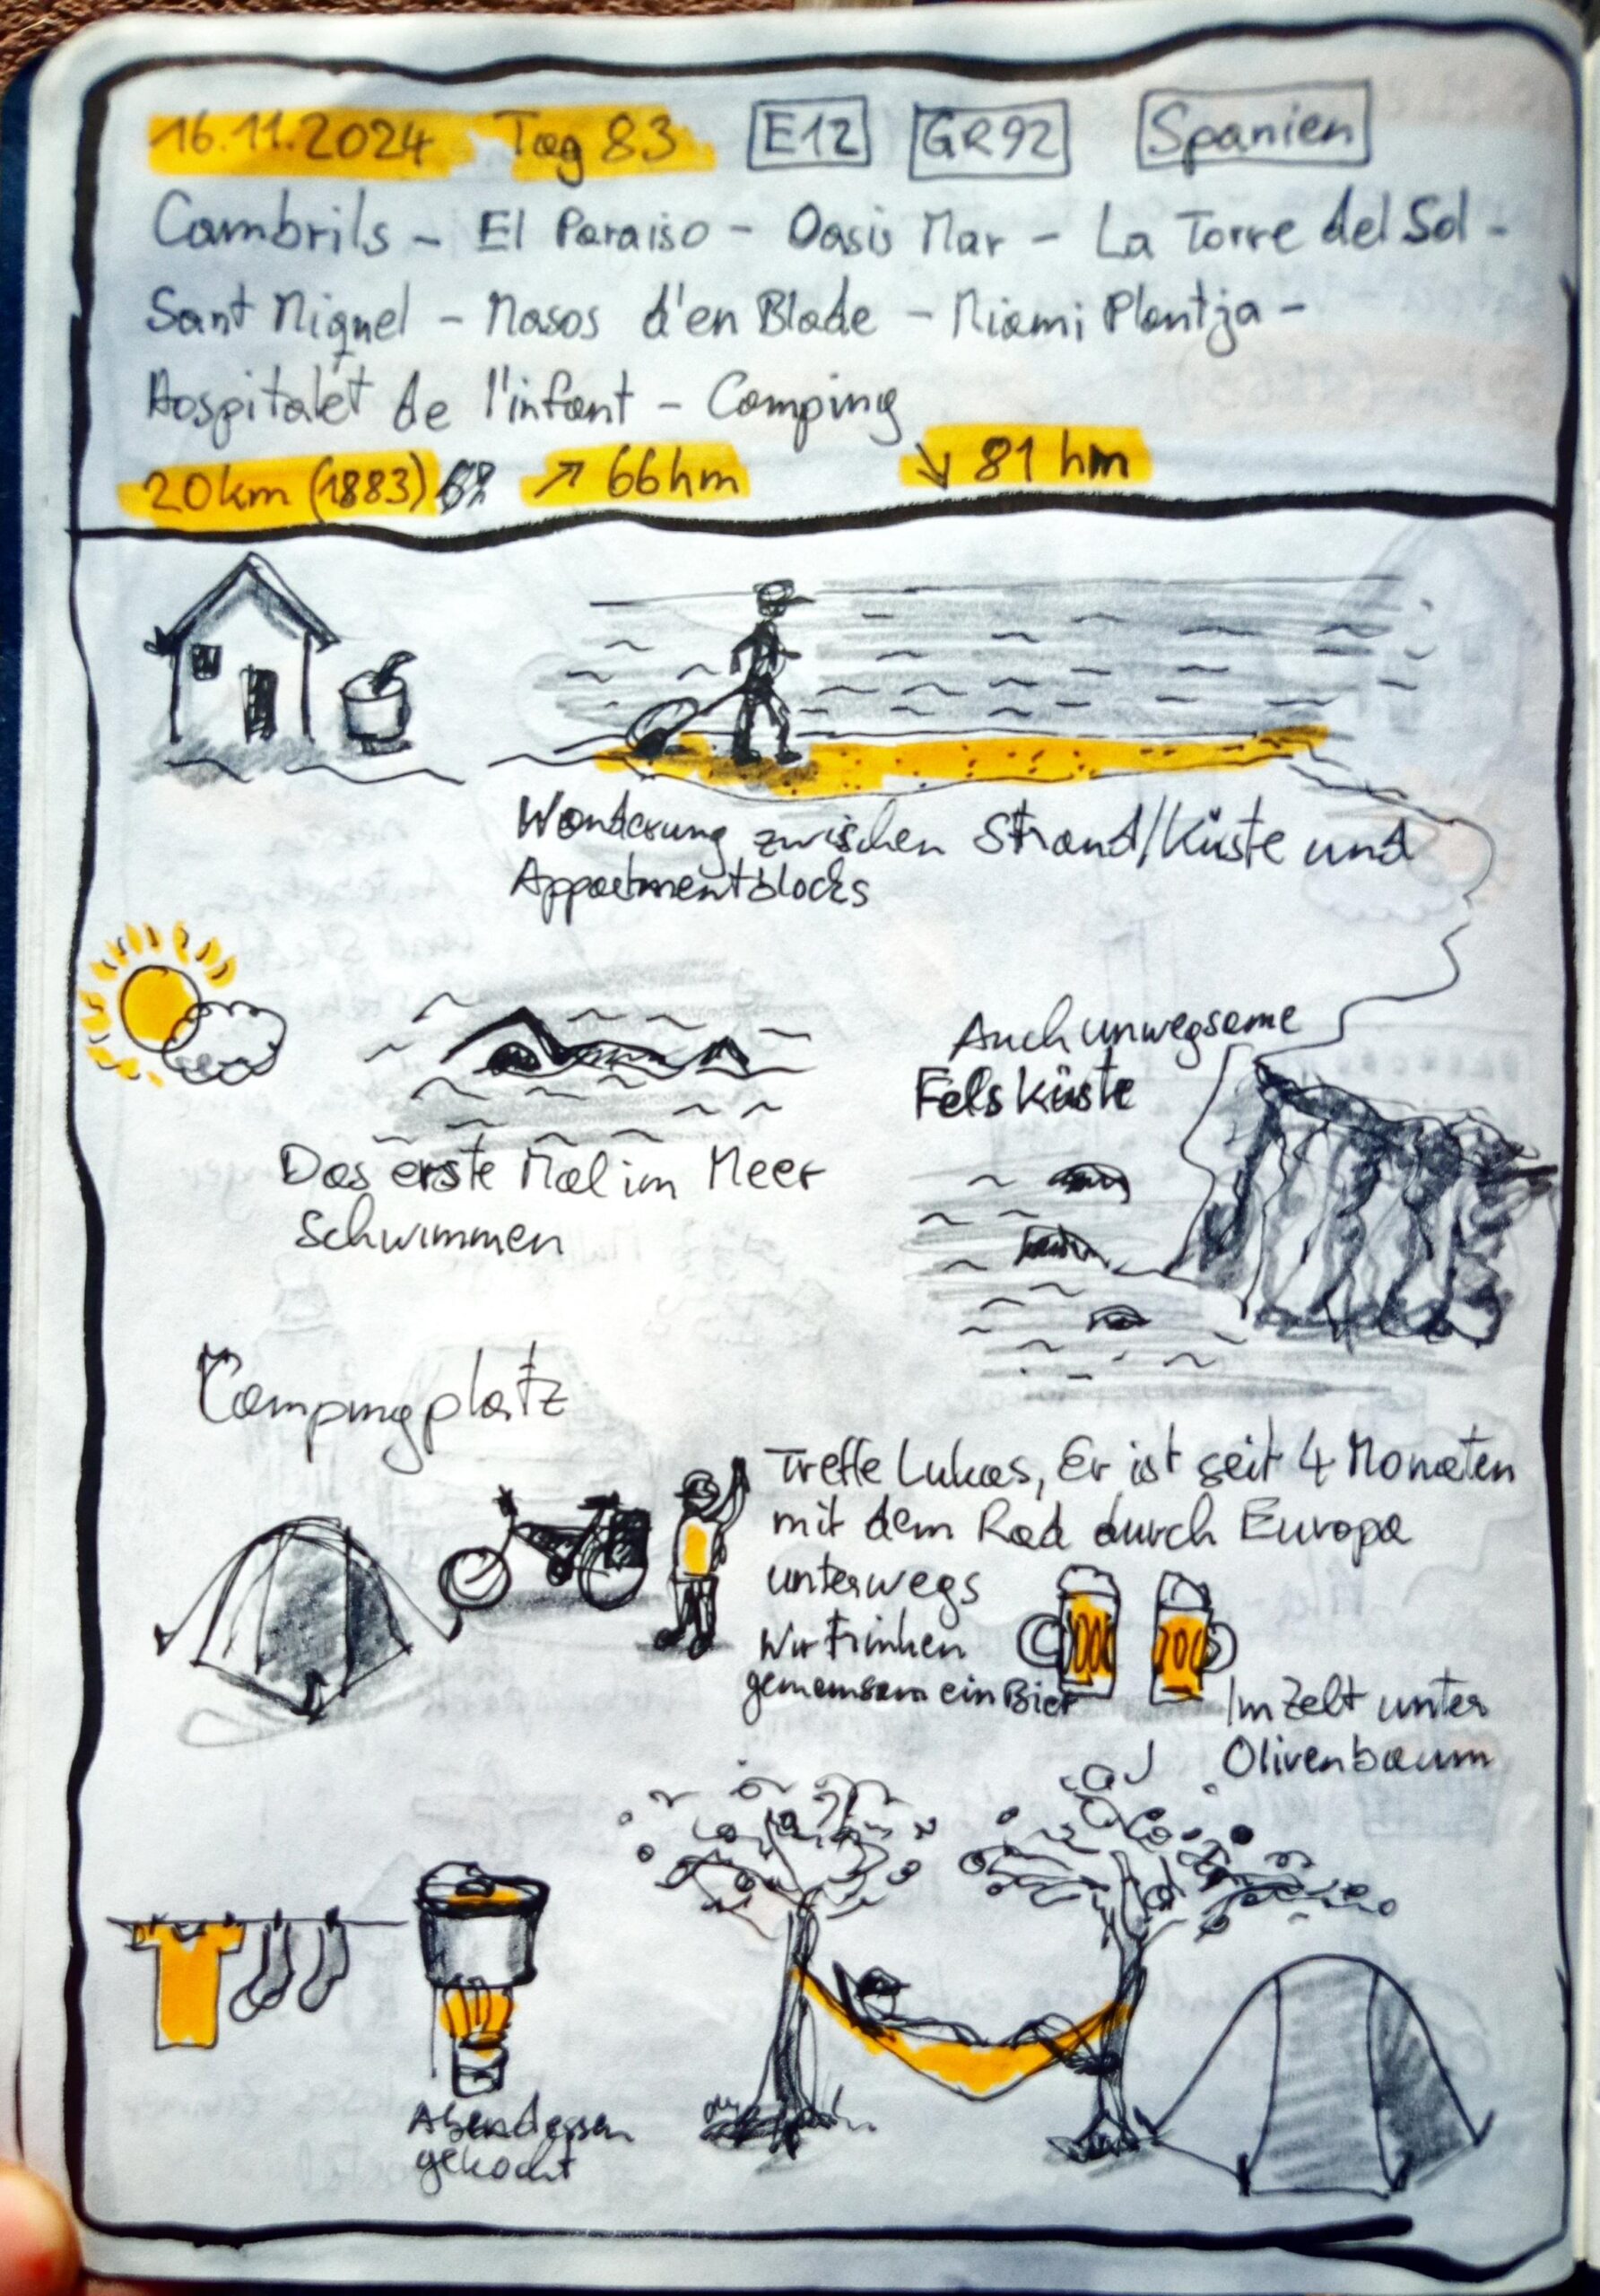 16.11.2024 Tag 83 E12 GR92 Spanien
Cambrils - El Paraiso - Oasis Mar - La Torre del Sol -
Sant Miquel - Masos d'en Blade - Miami Plantja -
Hospitalet de l'infant - Camping
20km (1883) ↗ 66hm ↘ 81 hm
Wanderung zwischen Strand/Küste und
Appartmentblocks
Auch unwegsame
Felsküste
Das erste Mal im Meer
schwimmen
Campingplatz
Treffe Lukas, Er ist seit 4 Monaten
mit dem Rad durch Europa
unterwegs
Wir trinken
gemeinsam ein Bier
Im Zelt unter
Olivenbaum
Abendessen
gekocht